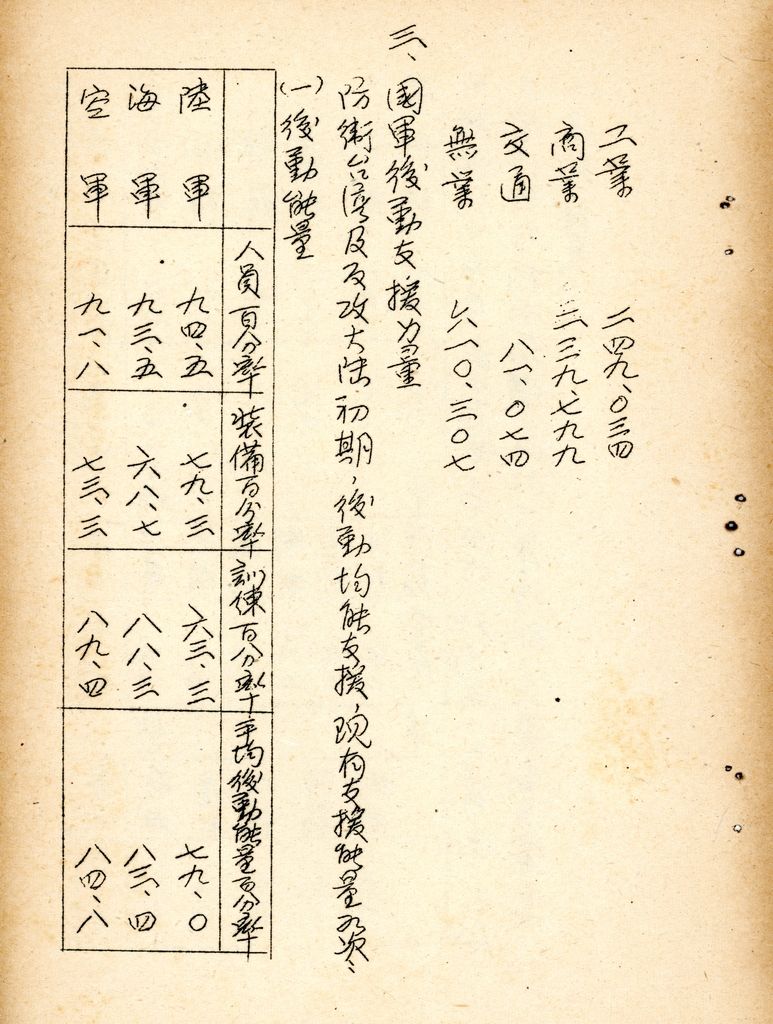 工業 二四九、〇三四
商業 三三九、七九九
交通 八一、〇七四
無業 六一〇、三〇七
三、國軍後勤支援力量
防衛台湾及反攻大陆初期，後勤均能支援，現有支援能量如次：
(一)後勤能量
人員百分率 裝備百分率 訓練百分率 平均後勤能量百分率
陸軍 九四、五 七九、三 六三、三 七九、〇
海軍 九三、五 六八、七 八八、三 八三、四
空軍 九一、八 七三、三 八九、四 八四、八